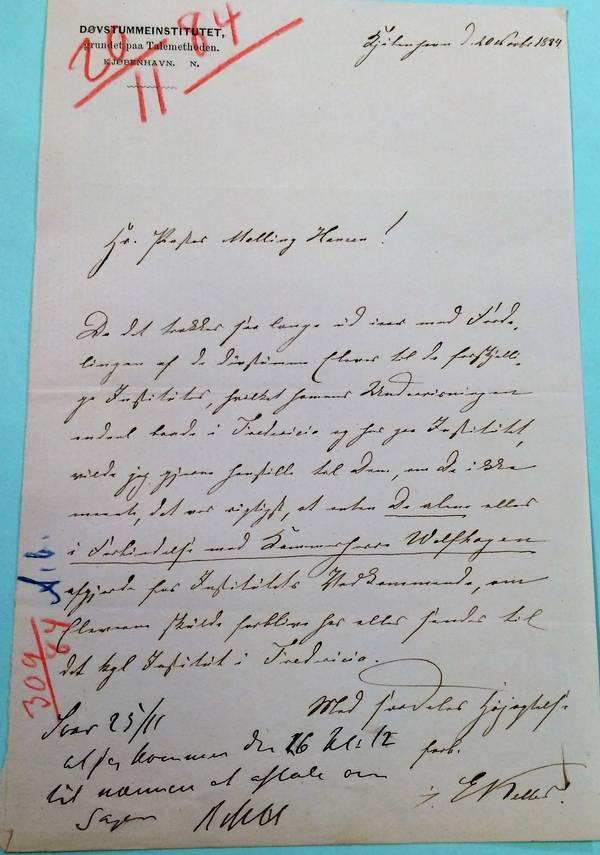 DØVSTUMMEINSTITUTET,
grundet paa Talemethoden.
KJØBENHAVN. N.
20 84
11
Kjöbenhavn d. 20 Novb. 1884
Hr. Pastor Malling Hansen!
Da det trækker saa længe ud iaar med Forde-
lingen af de døvstumme Elever til de forskjelli-
ge Institúter, hvilket hemmer Undervisningen
endeel baade i Fredericia og her paa Institútet,
vilde jeg gjerne henstille til Dem, om De ikke
meente, det var rigtigst, at enten De alene eller
i Forbindelse med Kammerherre Wolfhagen
afgjorde for Institútets Vedkommende, om
Eleverne skúlde forblive her eller sendes til
det kgl Institút i Fredericia.
Med særdeles Højagtelse
forb.
Svar 25/11
at jeg kommer den 26 Kl: 12
til nærmere at aftale om
Sagen
309
84